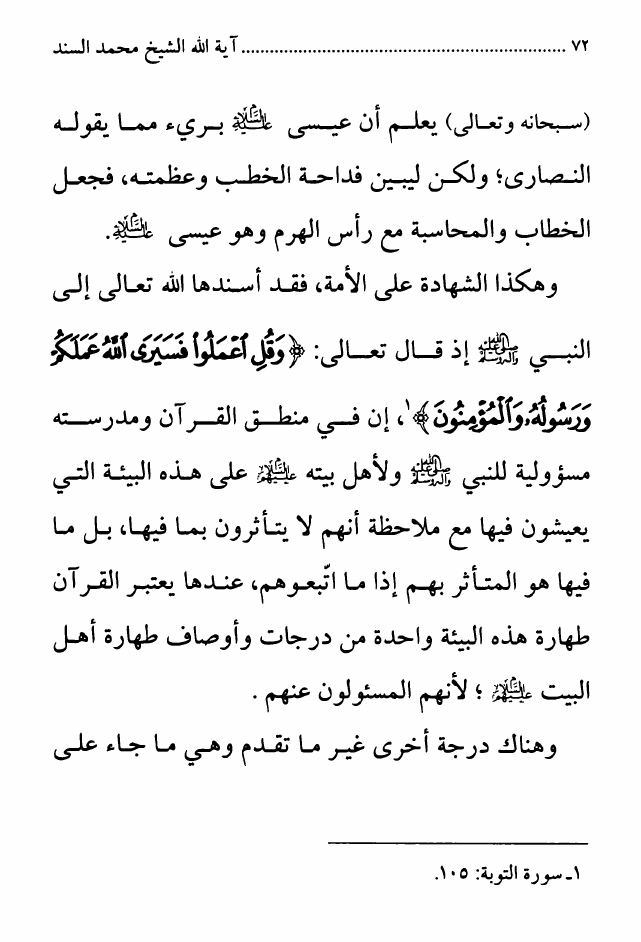 ٧٢ ........................................................ آية الله الشيخ محمد السند
(سبحانه وتعالى) يعلم أن عيسى عليه السلام بريء مما يقوله
النصارى؛ ولكن ليبين فداحة الخطب وعظمته، فجعل
الخطاب والمحاسبة مع رأس الهرم وهو عيسى عليه السلام.
وهكذا الشهادة على الأمة، فقد أسندها الله تعالى إلى
النبي صلى الله عليه وآله وسلم إذ قال تعالى: ﴿وَقُلِ ٱعْمَلُوا۟ فَسَيَرَى ٱللَّهُ عَمَلَكُمْ
وَرَسُولُهُۥ وَٱلْمُؤْمِنُونَ﴾١، إن في منطق القرآن ومدرسته
مسؤولية للنبي صلى الله عليه وآله وسلم ولأهل بيته عليهم السلام على هذه البيئة التي
يعيشون فيها مع ملاحظة أنهم لا يتأثرون بما فيها، بل ما
فيها هو المتأثر بهم إذا ما اتّبعوهم، عندها يعتبر القرآن
طهارة هذه البيئة واحدة من درجات وأوصاف طهارة أهل
البيت عليهم السلام ؛ لأنهم المسئولون عنهم .
وهناك درجة أخرى غير ما تقدم وهي ما جاء على
١ـ سورة التوبة: ١٠٥.